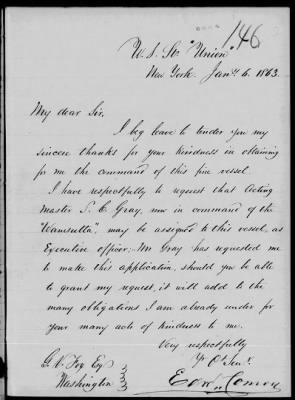 146
U. S. Str "Union"
New York. Jany 6. 1863.
My dear Sir,
I beg leave to tender you my
sincere thanks for your kindness in obtaining
for me the command of this fine vessel.
I have respectfully to request that Acting
Master S. C. Gray, now in command of the
"Wamsutta", may be assigned to this vessel, as
Executive officer; Mr Gray has requested me
to make this application, should you be able
to grant my request, it will add to the
many obligations I am already under for
your many acts of kindness to me.
Very respectfully
Yr Ob Servt.
G. V. Fox Esq
Washington
Edw. Conroy